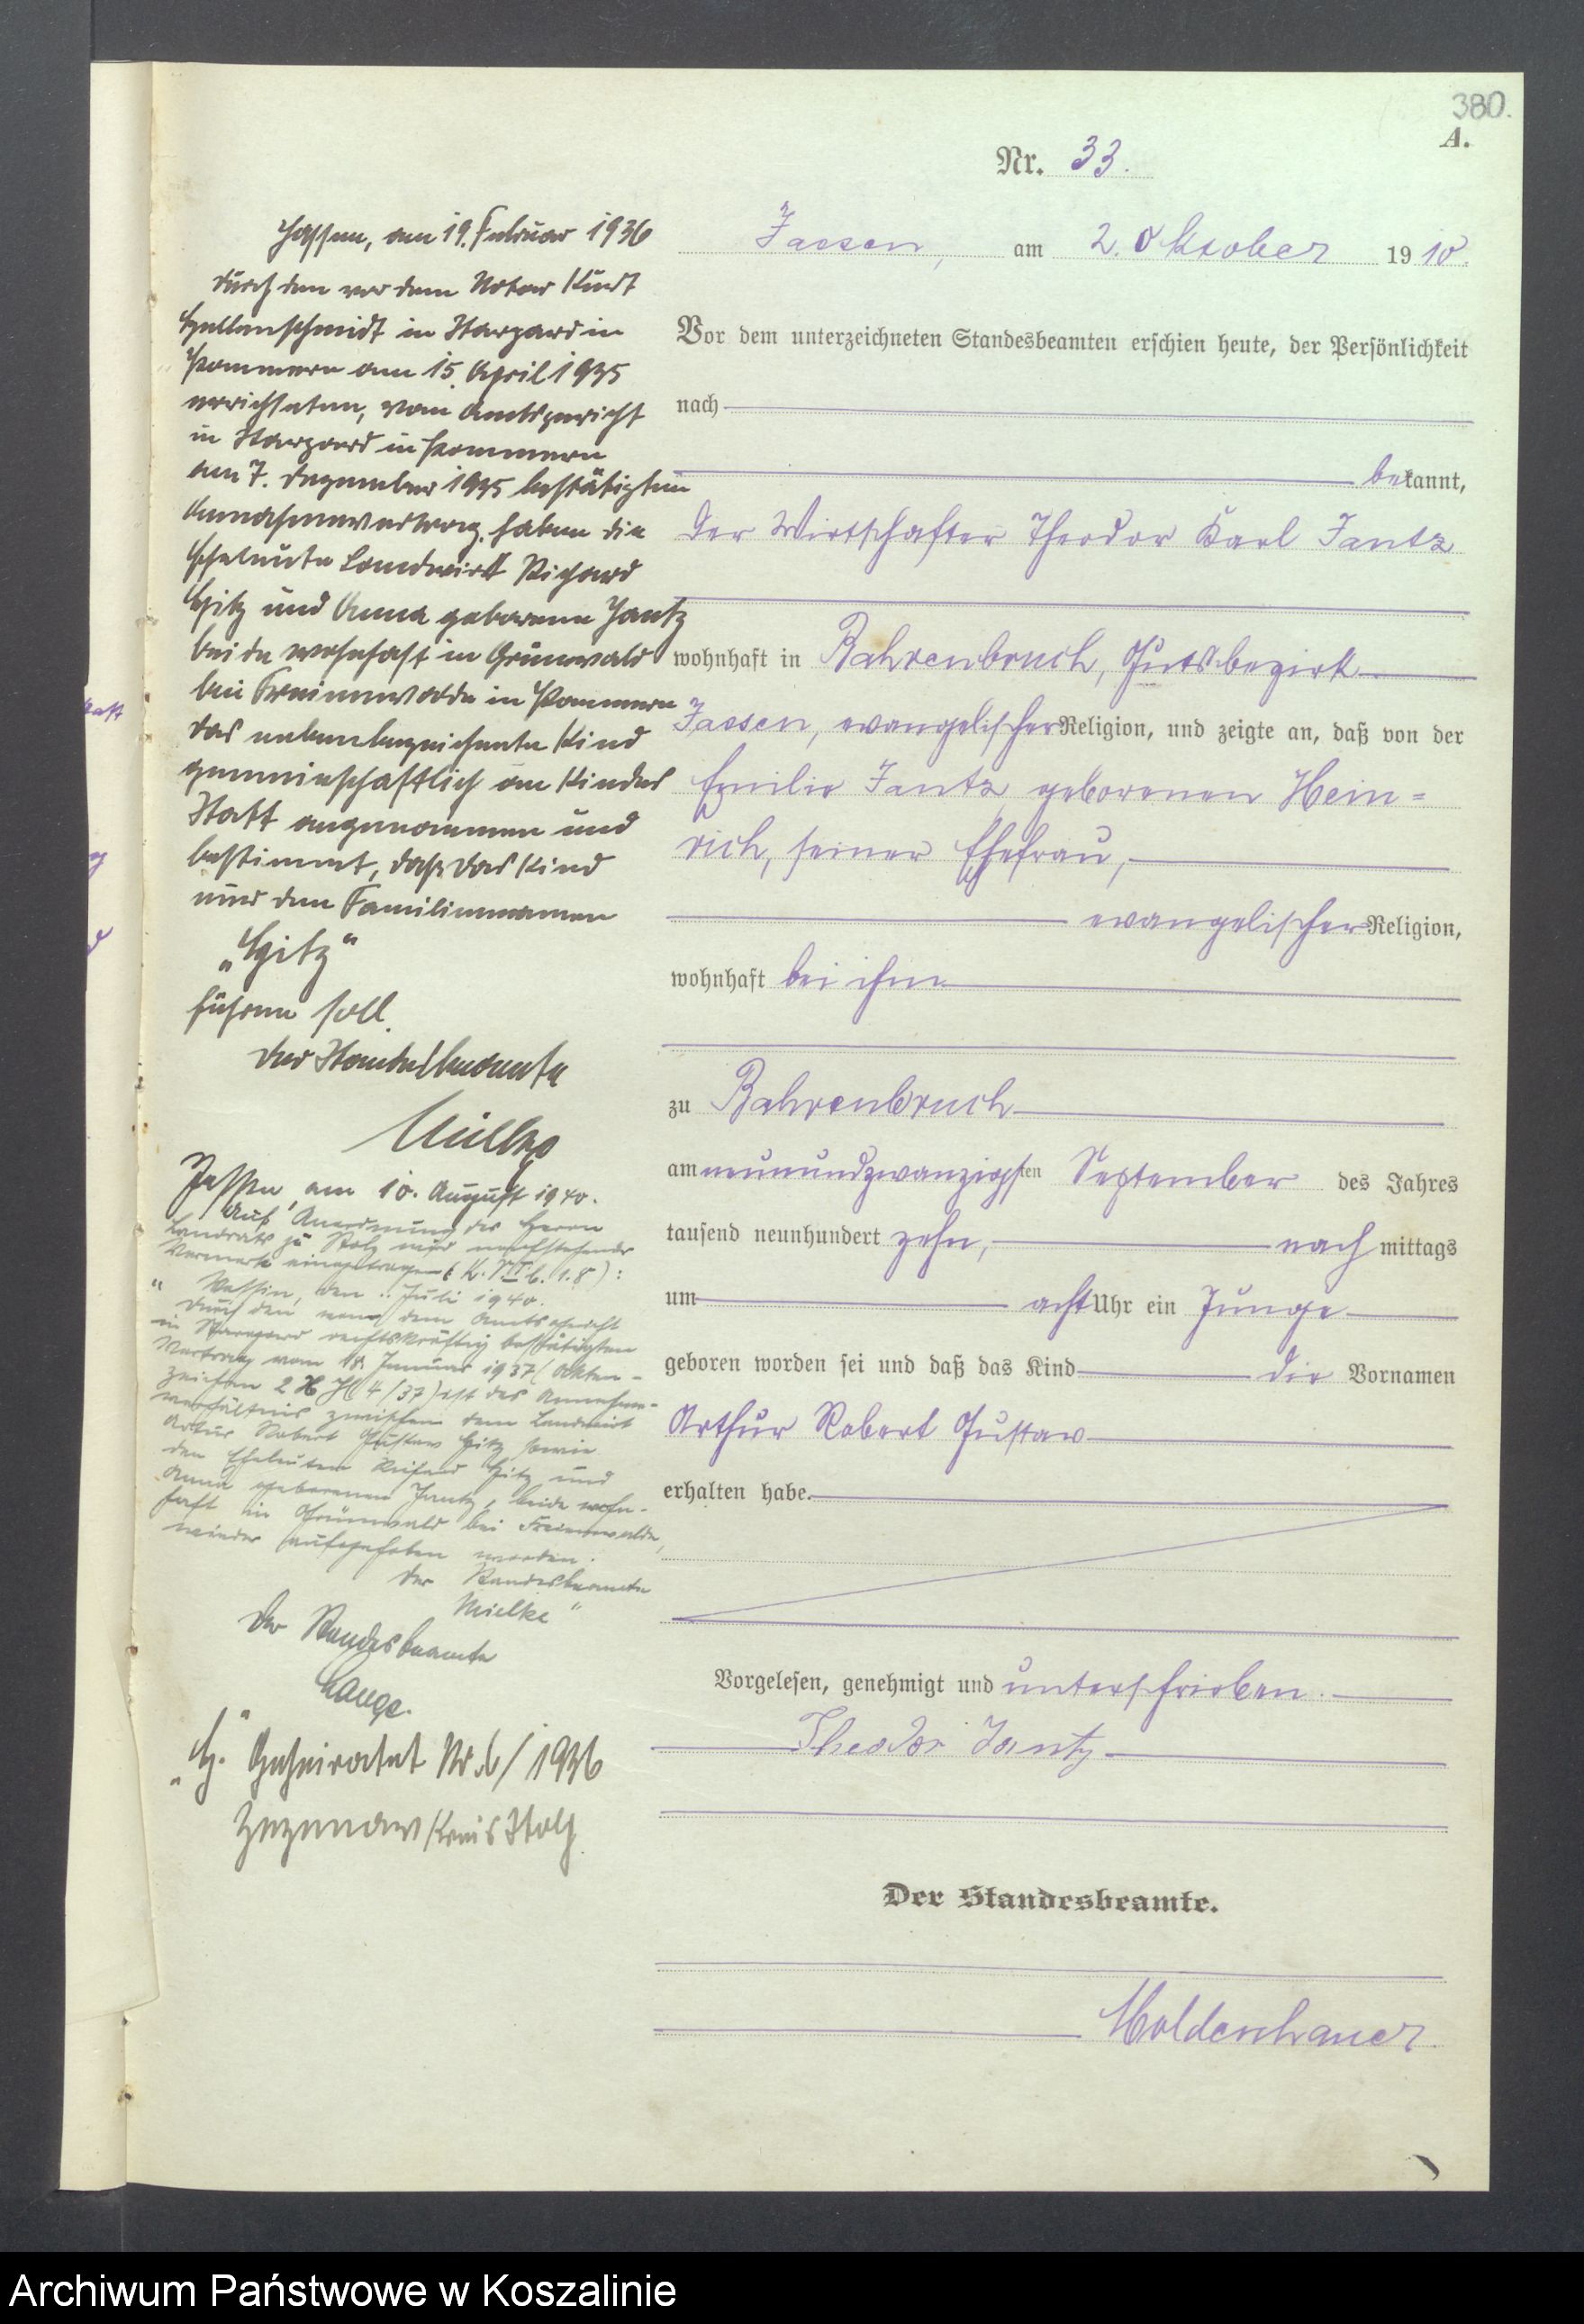 380.
A.
Nr. 33.
Jassen, am 2. Oktober 1910.
Vor dem unterzeichneten Standesbeamten erschien heute, der Persönlichkeit
nach
bekannt,
der Wirtschafter Theodor Karl Jantz
wohnhaft in Bahrenbruch, Gutsbezirk
Jassen, evangelischer Religion, und zeigte an, daß von der
Emilie Jantz geborenen Hein=
rich, seiner Ehefrau,
evangelischer Religion,
wohnhaft bei ihm
zu Bahrenbruch
am neunundzwanzigsten September des Jahres
tausend neunhundert zehn, nach mittags
um acht Uhr ein Junge
geboren worden sei und daß das Kind die Vornamen
Arthur Robert Gustav
erhalten habe.
Vorgelesen, genehmigt und unterschrieben.
Theodor Jantz
Der Standesbeamte.
Moldenhauer
Jassen, am 19. Februar 1936
Durch den vor dem Notar Kurt
in Stargard in
Pommern am 15. April 1935
errichteten, vom Amtsgericht
in Stargard in Pommern
am 7. Dezember 1935 bestätigten
Annahmevertrag haben die
Eheleute Landwirt Richard
und Anna geborene Jantz
beide wohnhaft in Grünwald
bei Freienwalde in Pommern
das nebenbezeichnete Kind
gemeinschaftlich an Kindes
Statt angenommen und
bestimmt, daß das Kind
nur den Familiennamen
führen soll.
Der Standesbeamte
Jassen, am 10. August 1940.
Auf Anordnung des Herrn
Landrats zu Stolp wird nachstehender
Vermerk eingetragen:
den .. Juli 1940.
Durch den von dem Amtsgericht
in Stargard rechtskräftig bestätigten
Vertrag vom 18. Januar 1937 (Akten-
zeichen 4/37) ist das Annahme-
verhältnis zwischen dem Landwirt
Artur Robert Gustav sowie
den Eheleuten Richard und
Anna geborenen Jantz, beide wohn-
haft in Grünwald bei Freienwalde,
wieder aufgehoben worden.
Der Standesbeamte
Mielke"
Der Standesbeamte
Lange.
Geheiratet Nr. 6/1936
Zezenow Kreis Stolp
Archiwum Państwowe w Koszalinie